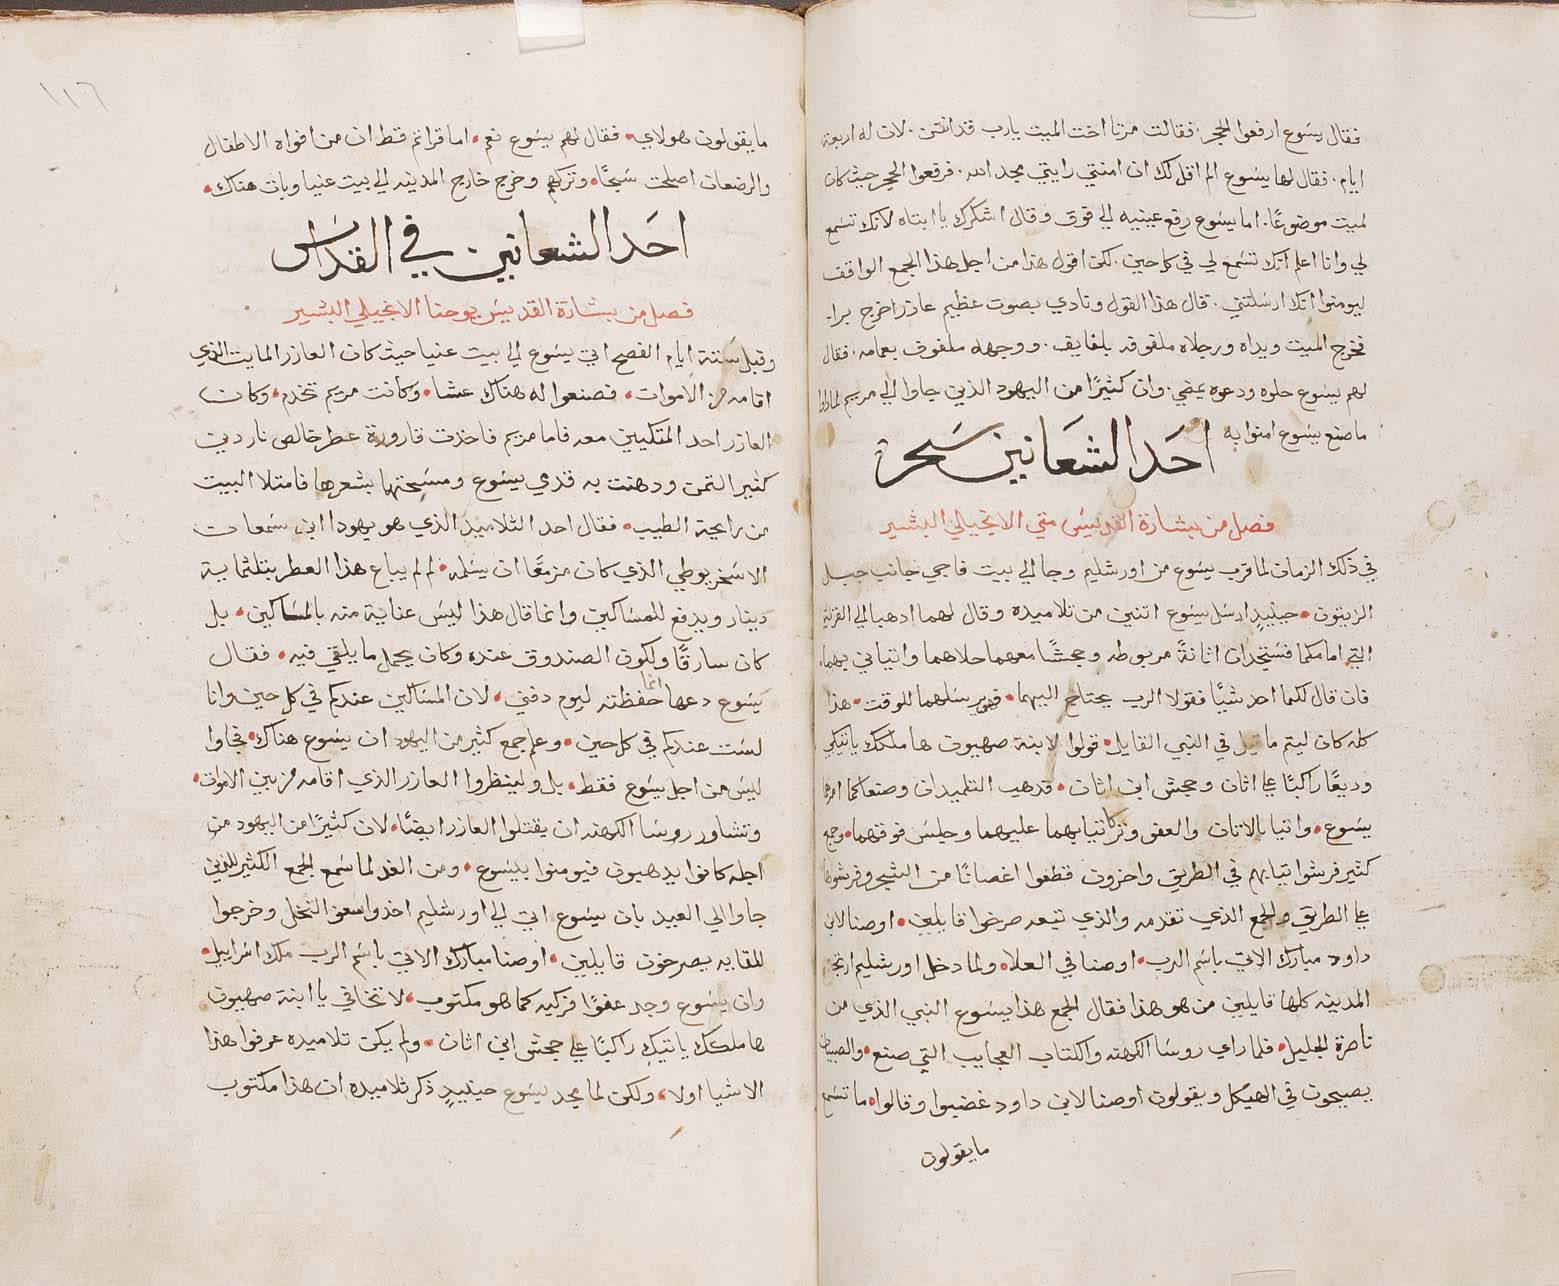 فقال يسوع ارفعوا الحجر. فقالت مرتا اخت الميت يارب قد انتن. لان له اربعة
ايام. فقال لها يسوع الم اقل لك ان امنتي رايتي مجد الله. فرفعوا الحجر حيث كان
لميت موضوعًا. اما يسوع رفع عينيه الي فوق وقال اشكرك يا ابتاه لانك تسمع
لي وانا اعلم انك تسمع لي في كل حين. لكن اقول هذا من اجل هذا الجمع الواقف
ليومنوا انك ارسلتني. قال هذا القول ونادي بصوت عظيم عازر اخرج برا.
فخرج الميت ويداه ورجلاه ملفوفه بلفايف. ووجهه ملفوف بعمامه. فقال
لهم يسوع حلوه ودعوه يمضي. وان كثيرًا من اليهود الذين جاوا الي مريم لما راوا
ما صنع يسوع امنوا به
احَد الشعَانين سَحر
فصل من بشارة القديس متي الانجيلي البشير
في ذلك الزمان لما قرب يسوع من اورشليم وجا الي بيت فاجي جانب جبل
الزيتون. حينيدٍ ارسل يسوع اتنين من تلاميده وقال لهما ادهبا الي القريه
التي امامكما فستجدان اتانةً مربوطه وجحشًا معهما حلاهما واتياني بهما
فان قال لكما احد شيًا فقولا الرب يحتاج اليهما. فهو يرسلهما للوقت. هذا
كله كان ليتم ما قيل في النبي القايل. قولوا لابنة صهيون ها ملكك ياتيكي
وديعًا راكبًا علي اتان وجحش ابن اتان. فدهب التلميدان وصنعا كما امرهما
يسوع. واتيا بالاتان والعفو وتركا تيابهما عليهما وجلس فوقهما. وجمع
كثير فرشوا تيابهم في الطريق واخرون قطعوا اغصانًا من الشجر وفرشوها
علي الطريق والجمع الذي تقدمه والذي تبعه صرخوا قايلين. اوصنا لابن
داود مبارك الاتي باسم الرب. اوصنا في العلا. ولما دخل اورشليم ارتجت
المدينه كلها قايلين من هو هذا فقال الجمع هذا يسوع النبي الذي من
ناصرة الجليل. فلما راي روسا الكهنه والكتاب العجايب التي صنع. والصبيان
يصيحون في الهيكل ويقولون اوصنا لابن داود غضبوا وقالوا. ما تسمع
ما يقولون
١١٦
ما يقولون هولاي. فقال لهم يسوع نعم. اما قراتم قط ان من افواه الاطفال
والرضعان اصلحت سبحًا. وتركهم وخرج خارج المدينه الي بيت عنيا وبات هناك.
احَد الشعانين في القداسَ
فصل من بشارة القديس يوحنا الانجيلي البشير
وقبل ستة ايام الفصح اتي يسوع الي بيت عنيا حيث كان العازر المايت الذي
اقامه من الاموات. فصنعوا له هناك عشا. وكانت مريم تخدم. وكان
العازر احد المتكيين معه فاما مريم فاخذت قارورة عطر خالص ناردين
كثير التمن ودهنت به قدمي يسوع ومسحتهما بشعرها فامتلا البيت
من رايحة الطيب. فقال احد التلاميد الذي هو يهودا ابن سمعان
الاسخريوطي الذي كان مزمعًا ان يسلمه. لم لم يباع هذا العطر بتلثماية
دينار ويدفع للمساكين وانما قال هذا ليس عناية منه بالمساكين. بل
كان سارقًا ولكون الصندوق عنده وكان يحمل ما يلقي فيه. فقال
يسوع دعها انما حفظته ليوم دفني. لان المساكين عندكم في كل حين وانا
لست عندكم في كل حين. وعلم جمع كثير من اليهود ان يسوع هناك. فجاوا
ليس من اجل يسوع فقط. بل ولينظروا العازر الذي اقامه من بين الاموات.
وتشاور روسا الكهنه ان يقتلوا العازر ايضًا. لان كثيرًا من اليهود من
اجله كانوا يدهبون فيومنوا بيسوع. ومن الغد لما سمع الجمع الكثير للذين
جاوا الي العيد بان يسوع اتي الي اورشليم اخذوا سعف النخل وخرجوا
للقايه يصرخون قايلين. اوصنا مبارك الاتي باسم الرب ملك اسراييل.
وان يسوع وجد عفوًا فركبه كما هو مكتوب. لا تخافي يا ابنة صهيون
ها ملكك ياتيك راكبًا علي جحش ابن اتان. ولم يكن تلاميده عرفوا هذا
الاشيا اولا. ولكن لما مجد يسوع حينيدٍ ذكر تلاميده ان هذا مكتوب